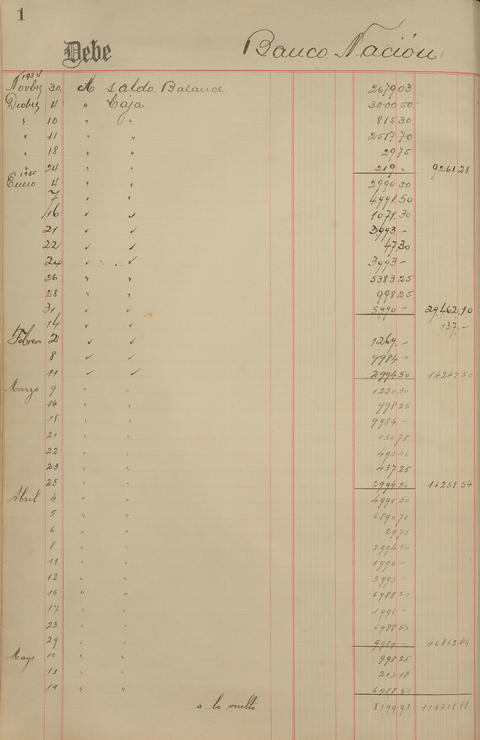 1
Debe Banco Nación
Novbre 30 A saldo Balance 2679.03
Dicbre 4 " Caja 3000.50
" 10 " " 815.30
" 11 " " 2587.70
" 18 " " 29.75
24 " " 219 - 9261.28
Enero 4 " " 2994.30
7 " " 4991.50
16 " " 1071.30
21 " " 3993 -
22 " " 47.30
24 " " 3993 -
26 " " 5383.25
28 " " 998.25
31 " " 5990 - 29.462.10
14 " " 137.-
Febrero 2 " " 1269.-
8 " " 9984 -
11 " " 2994.50 14247.50
Marzo 9 " "
14 " " 998.25
18 " " 9984 -
21 " " 130.78
22 " "
23 " " 437.25
25 " " 2994.50 16258.54
Abril 4 " " 4991.50
5 " "
6 " " 29.75
8 " " 2994.50
11 " " 1996 -
12 " " 3993 -
15 " " 6988.50
17 " " 1996 -
23 " " 6988.50
29 " "
Mayo " " 998.25
13 " "
19 " " 6988.50
a la vuelta